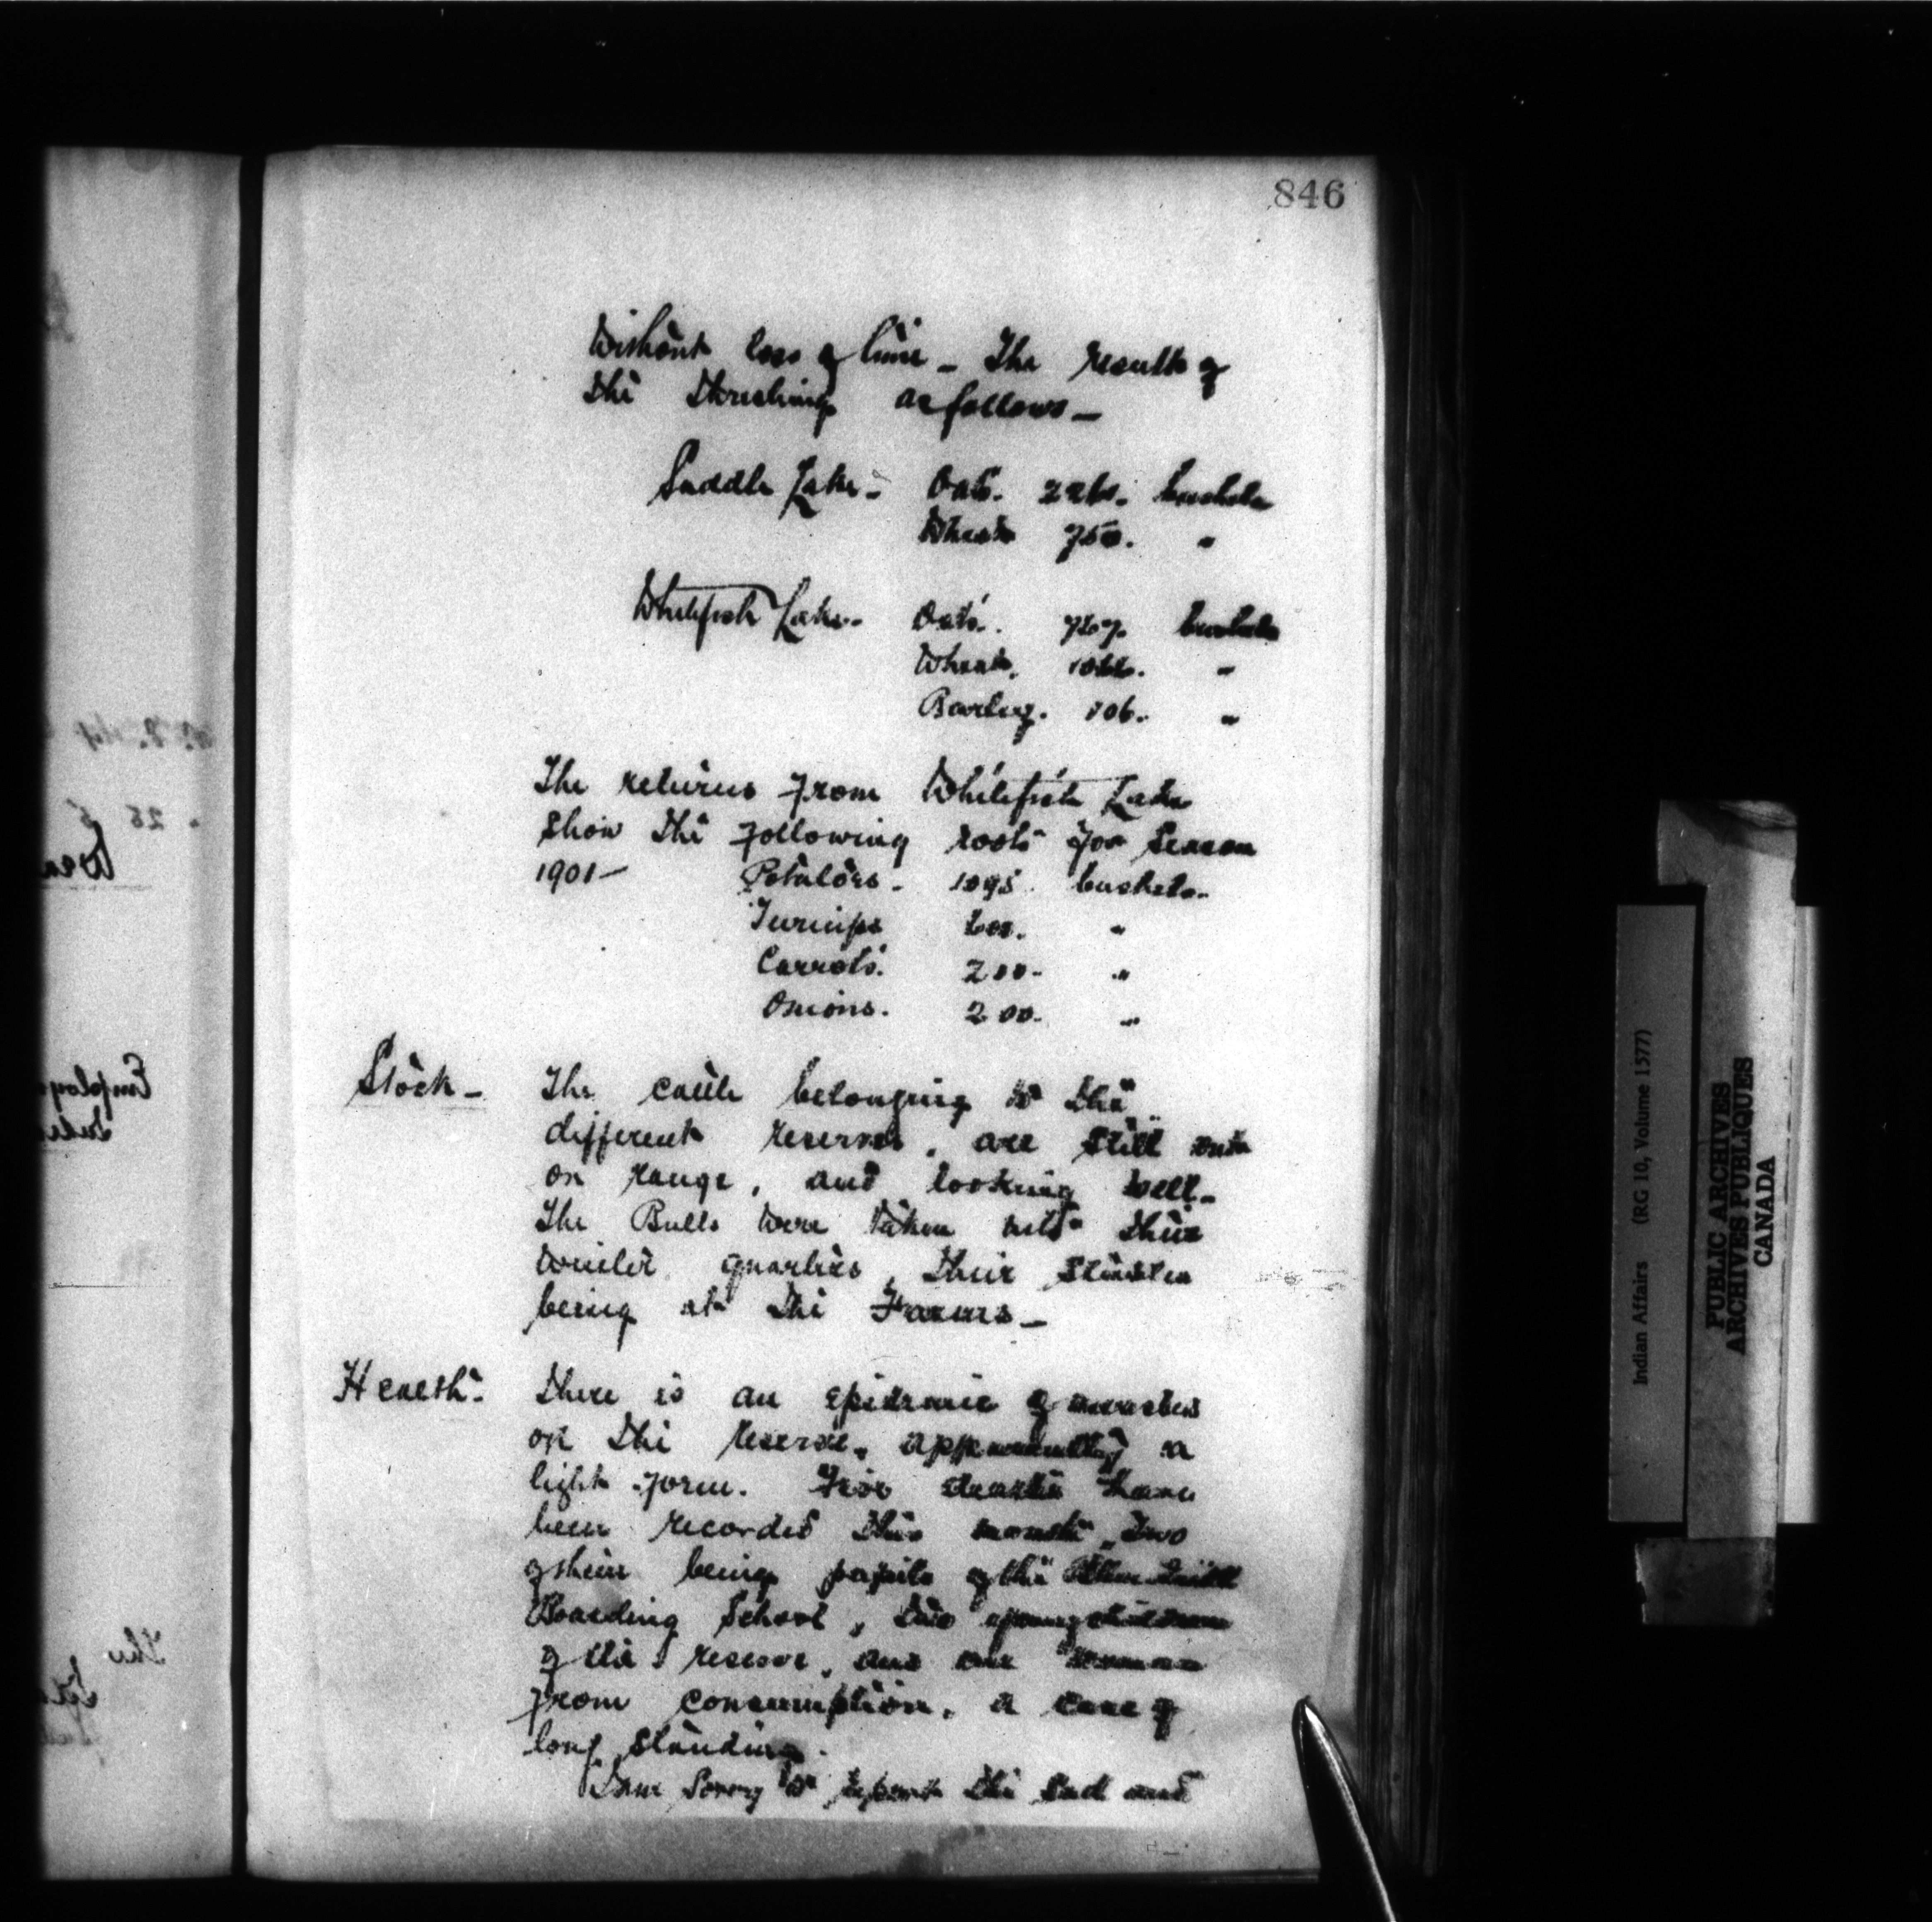 846
Without loss of time - The result of
the threshing as follows -
Saddle Lake - Oats. bushels
Wheat 750. "
Whitefish Lake - Oats. 767. bushels
Wheat. "
Barley. 106. "
The returns from Whitefish Lake
show the following roots for Season
1901 - Potatoes. 1095. bushels.
Turnips "
Carrots. 200. "
Onions. 200. "
Stock - The cattle belonging to the
different reserves, are still out
on range, and looking well.
The Bulls were taken into their
winter quarters, their stables
being at the Farms -
Health - There is an epidemic of measles
on the reserve, apparently a
light form. Five deaths have
been recorded this month, two
of them being pupils of the Blue Quill
Boarding School, two young children
of the reserve, and one woman
from consumption, a case of
long standing.
I am sorry to report the sad and
Indian Affairs (RG 10, Volume 1577)
PUBLIC ARCHIVES
ARCHIVES PUBLIQUES
CANADA